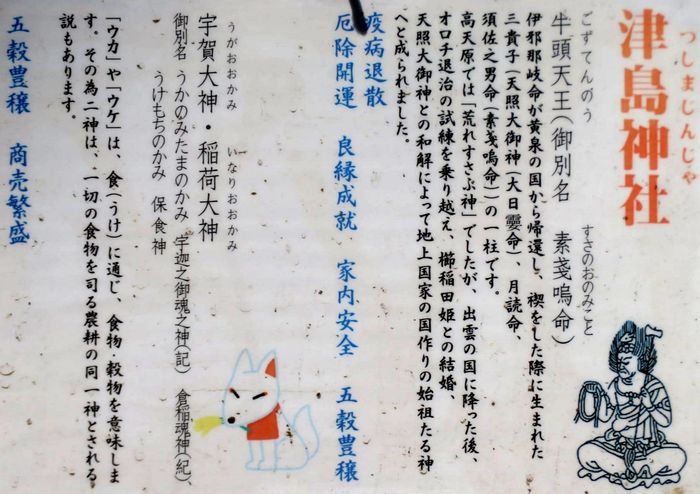 つしまじんじゃ
津島神社
ごずてんのう すさのおのみこと
牛頭天王(御別名 素戔嗚命)
伊邪那岐命が黄泉の国から帰還し、禊をした際に生まれた
三貴子(天照大御神(大日孁命)、月読命、
須佐之男命(素戔嗚命))の一柱です。
高天原では「荒れすさぶ神」でしたが、出雲の国に降った後、
オロチ退治の試練を乗り越え、櫛稲田姫との結婚、
天照大御神との和解によって地上国家の国作りの始祖たる神
へと成られました。
疫病退散
厄除開運 良縁成就 家内安全 五穀豊穣
うがおおかみ いなりおおかみ
宇賀大神・稲荷大神
御別名 うかのみたまのかみ 宇迦之御魂之神(記) 倉稲魂神(紀)、
うけもちのかみ 保食神
「ウカ」や「ウケ」は、食(うけ)に通じ、食物・穀物を意味しま
す。その為二神は、一切の食物を司る農耕の同一神とされる
説もあります。
五穀豊穣 商売繁盛